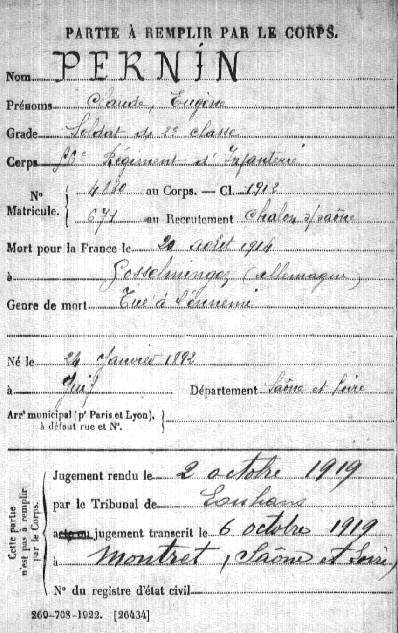 PARTIE À REMPLIR PAR LE CORPS.
Nom PERNIN
Prénoms Claude, Eugène
Grade Soldat de 2e classe
Corps Régiment d'Infanterie
N° Matricule. { 4860 au Corps. — Cl. 1912
671 au Recrutement Chalon s/Saône
Mort pour la France le 20 août 1914
à Gosselmingen (Allemagne)
Genre de mort Tué à l'ennemi
Né le 24 Janvier 1892
à Juif Département Saône et Loire
Arrt municipal (pr Paris et Lyon),
à défaut rue et N°. }
Cette partie n'est pas à remplir par le Corps.
Jugement rendu le 2 octobre 1919
par le Tribunal de Louhans
acte ou jugement transcrit le 6 octobre 1919
à Montret (Saône et Loire)
N° du registre d'état civil
269-708-1922. [26434]